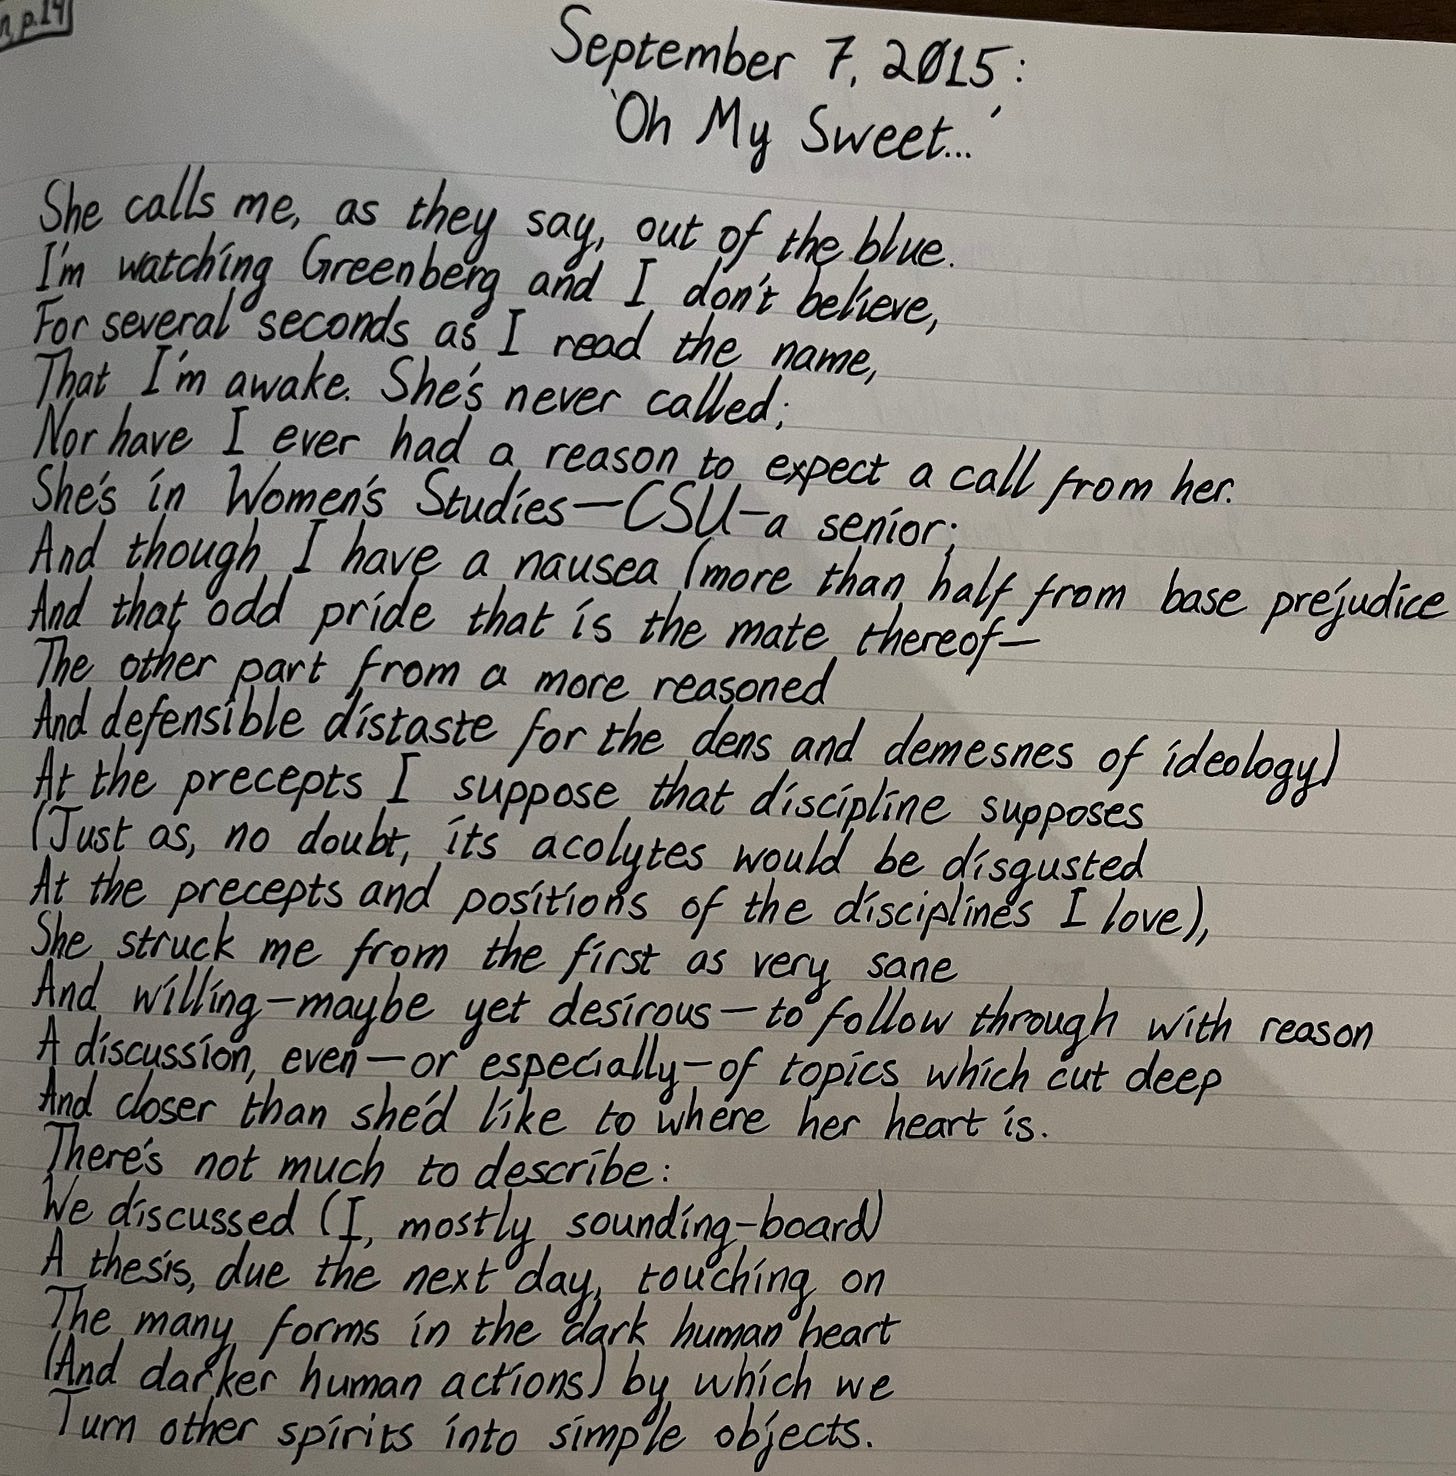 p.14
September 7, 2015:
'Oh My Sweet...'
She calls me, as they say, out of the blue.
I'm watching Greenberg and I don't believe,
For several seconds as I read the name,
That I'm awake. She's never called;
Nor have I ever had a reason to expect a call from her.
She's in Women's Studies—CSU—a senior;
And though I have a nausea (more than half from base prejudice
And that odd pride that is the mate thereof—
The other part from a more reasoned
And defensible distaste for the dens and demesnes of ideology)
At the precepts I suppose that discipline supposes
(Just as, no doubt, its acolytes would be disgusted
At the precepts and positions of the disciplines I love),
She struck me from the first as very sane
And willing—maybe yet desirous—to follow through with reason
A discussion, even—or especially—of topics which cut deep
And closer than she'd like to where her heart is.
There's not much to describe:
We discussed (I, mostly sounding-board)
A thesis, due the next day, touching on
The many forms in the dark human heart
(And darker human actions) by which we
Turn other spirits into simple objects.